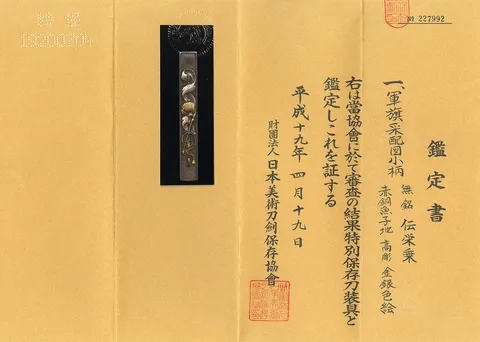 № 227992
鑑定書
一、軍旗采配図小柄
無銘 伝栄乗
赤銅魚子地 高彫 金銀色絵
右は當協會に於て審査の結果特別保存刀装具と
鑑定しこれを証する
平成十九年 四月十九日
財團法人 日本美術刀劍保存協會